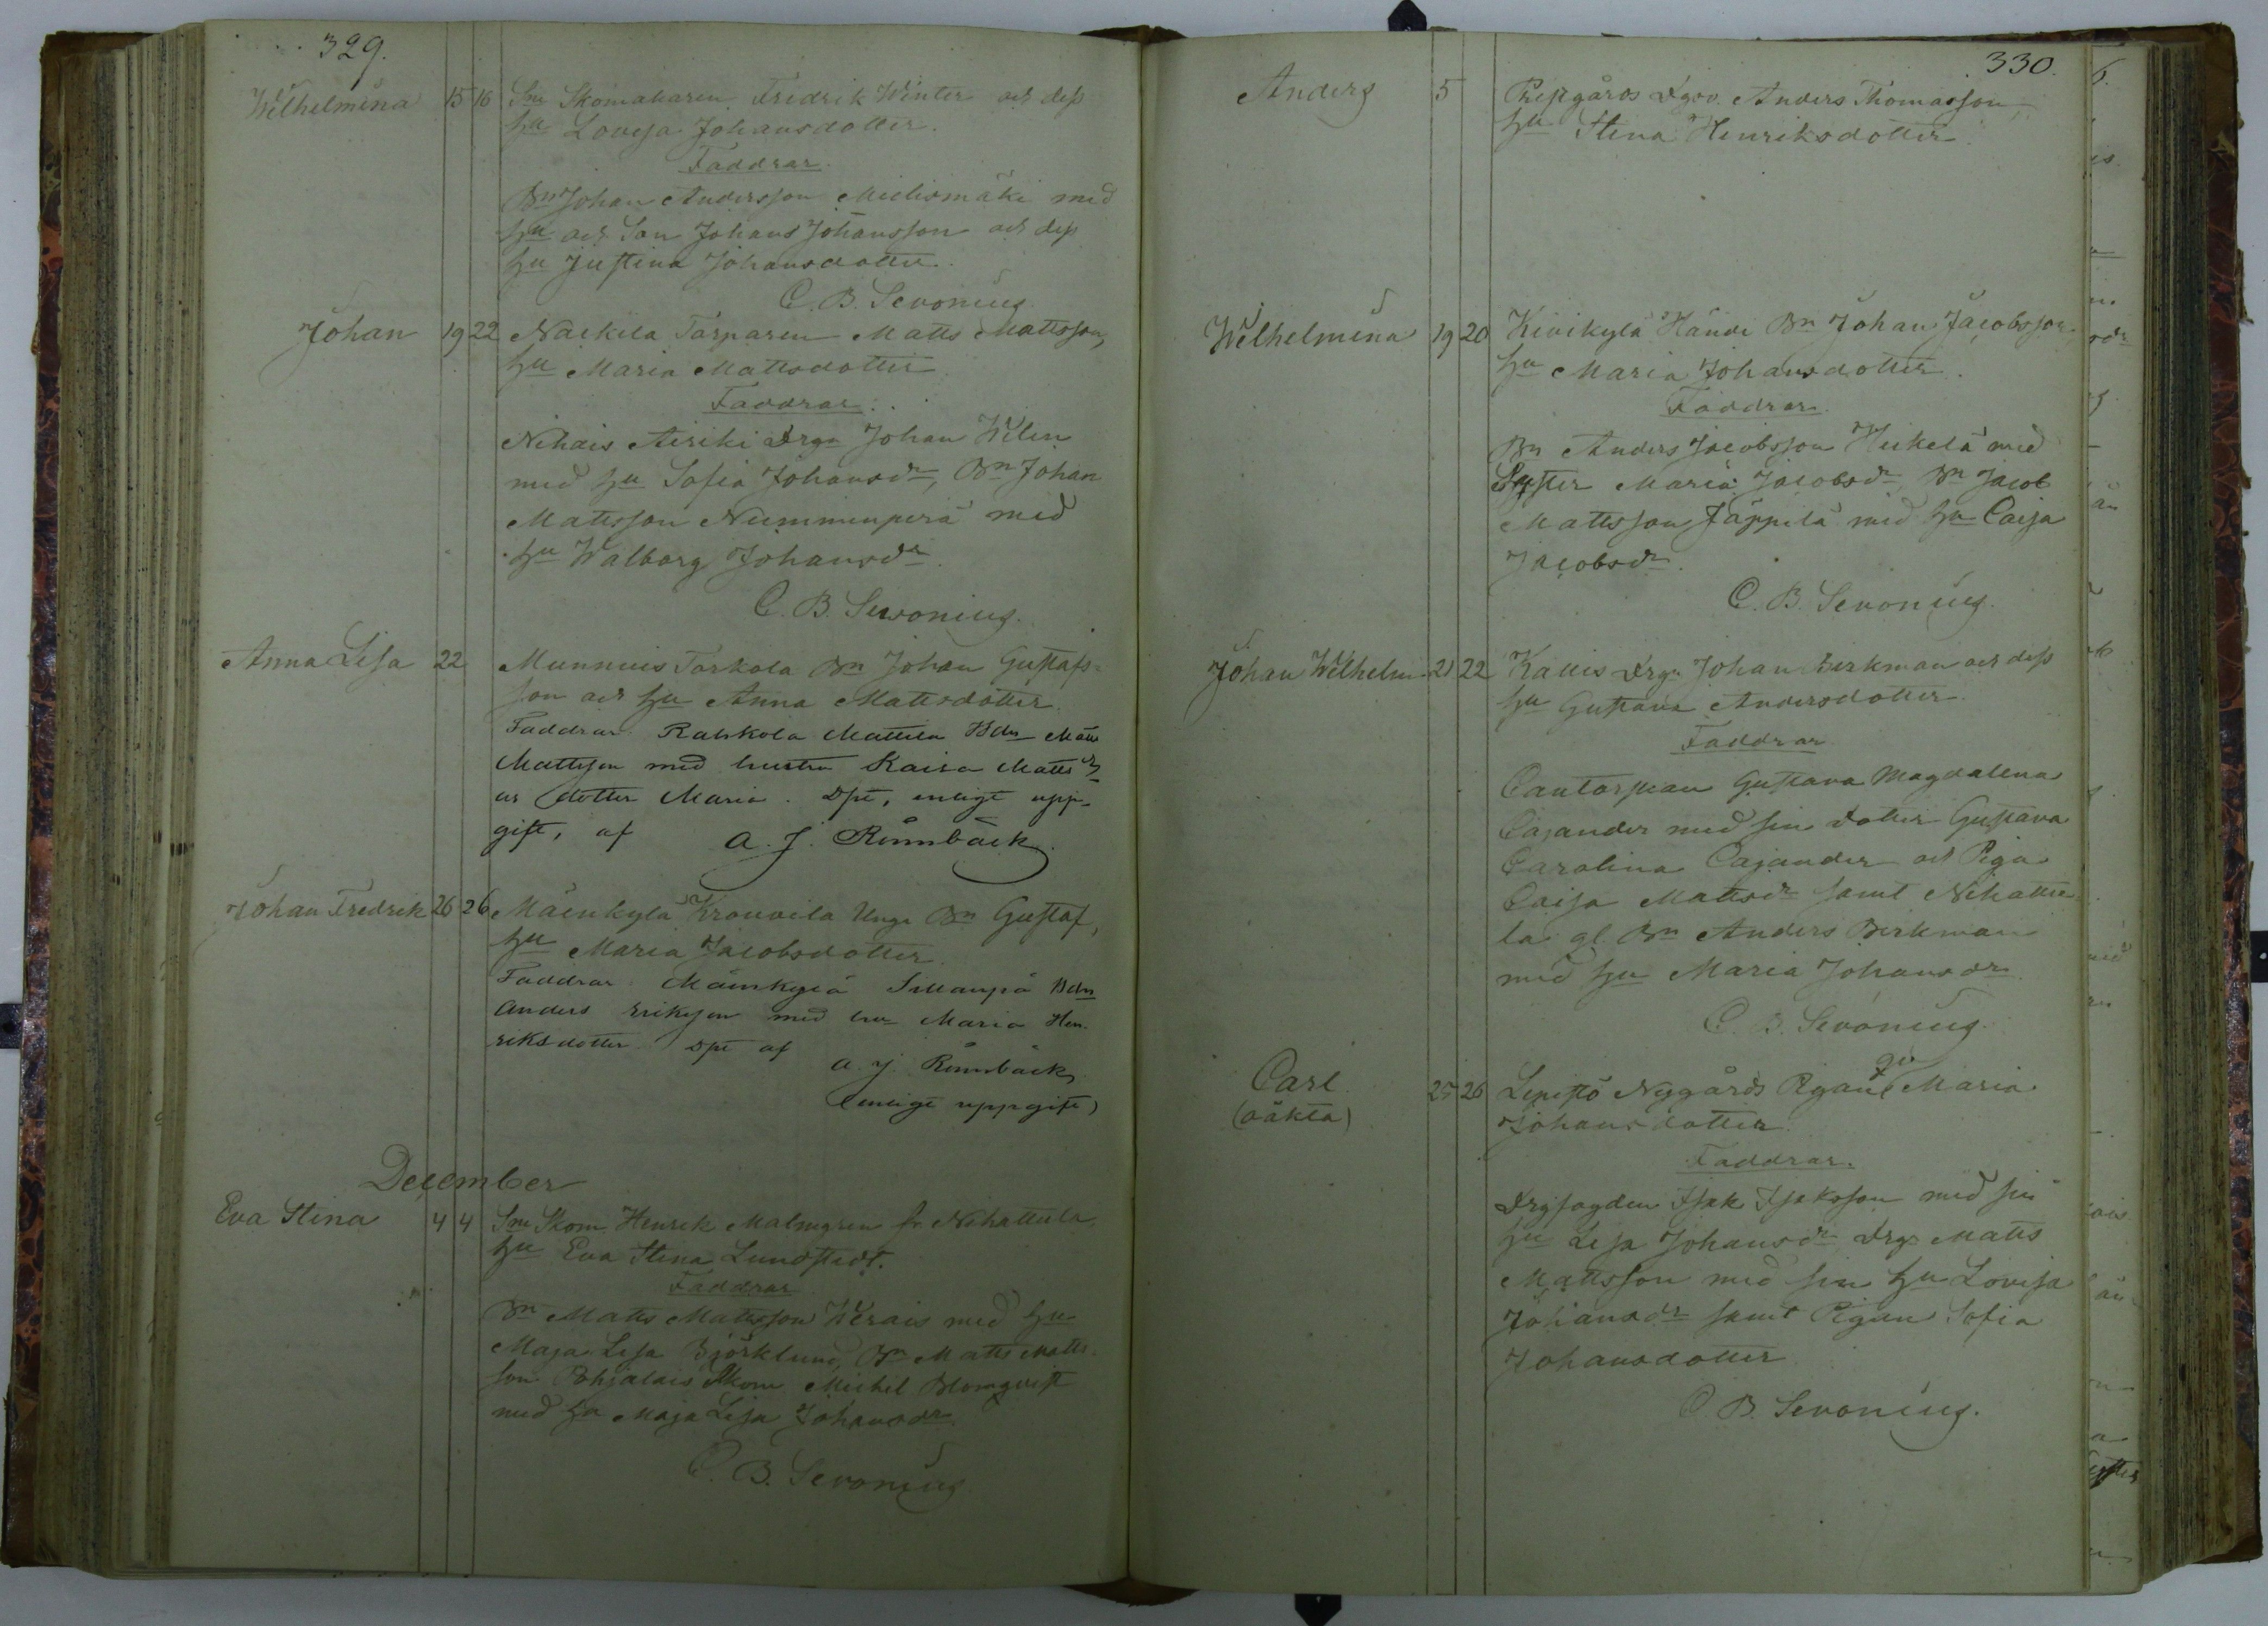 329.
Wilhelmina 15 16 Sne Skomakaren Fridrik Winter och dess
hu Lovisa Johansdotter.
Faddrar.
Bn Johan Andersson Mielismäki med
hu och Son Johans Johansson och dess
hu Justina Johansdotter.
C. B. Sevonius
Johan 19 22 Naekila Torparen Matts Mattsson,
hu Maria Mattsdotter
Faddrar.
Nihais Airiki Drgn Johan Wilen
med hu Sofia Johansdr, Bn Johan
Mattsson Nummenperä med
hu Walborg Johansdr.
C. B. Sevonius.
Anna Lisa 22 Munnuis Torkola Bn Johan Gustafs-
son och hu Anna Mattsdotter.
Faddrar Rahkola Mattila Bdn Matts
Mattsson med hustru Kaisa Mattsdr
o dotter Maria. Dpt, enligt upp-
gift, af A. J. Rönnbäck.
Johan Fredrik 26 26 Mäenkylä Krouvila Unge Bn Gustaf,
hu Maria Jacobsdotter.
Faddrar Mäenkylä Sillanpä Bdn
Anders Eriksson med hu Maria Hen-
riksdotter. Dpt af
A. J. Rönnbäck
(enligt uppgift)
December
Eva Stina 4 4 Sne Skom Henrik Malmgren fr Nihattula,
hu Eva Stina Lundstedt.
Faddrar
Bn Matts Mattsson Wirais med hu
Maja Lisa Björklund, Bn Matts Matts-
son Pohjalais Skom Michel Blomqvist
med hu Maja Lisa Johansdr.
C. B. Sevonius
330.
Anders 5 Prestgårds Dgsv. Anders Thomasson,
hu Stina Henriksdotter.
Wilhelmina 19 20 Kivikylä Hände Bn Johan Jacobsson
hu Maria Johansdotter.
Faddrar.
Bn Anders Jacobsson Heikelä med
Syster Maria Jacobsdr, Bn Jacob
Mattsson Jäppilä med hu Caisa
Jacobsdr.
C. B. Sevonius.
Johan Wilhelm 21 22 Kallis Drgn Johan Birkman och dess
hu Gustava Andersdotter.
Faddrar
Cantorskan Gustava Magdalena
Cajander med sin dotter Gustava
Carolina Cajander och Piga
Caisa Mattsdr samt Nihattu-
la gl. Bn Anders Birkman
med hu Maria Johansdr.
C. B. Sevonius.
Carl 25 26 Lepistö Nygårds Pigan Maria
(oäkta) Johansdotter.
Faddrar.
Drgsogden Isak Isaksson med sin
hu Lisa Johansdr, Drgn Matts
Mattsson med sin hu Lovisa
Johansdr samt Pigan Sofia
Johansdotter
C. B. Sevonius.